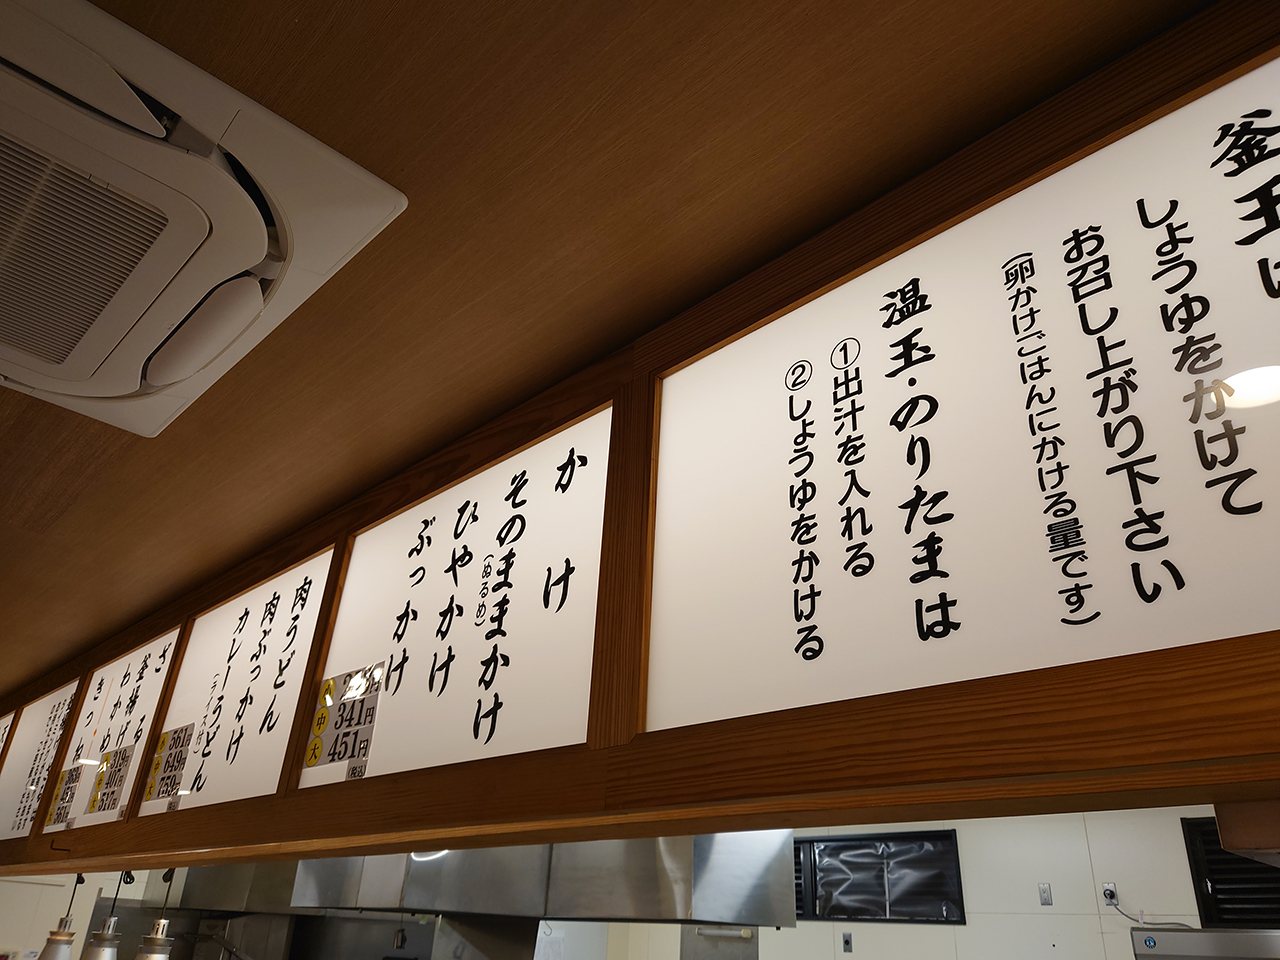 釜玉は
しょうゆをかけて
お召し上がり下さい
(卵かけごはんにかける量です)
温玉・のりたまは
①出汁を入れる
②しょうゆをかける
かけ
そのままかけ
(ぬるめ)
ひやかけ
ぶっかけ
小
中 341円
大 451円
(税込)
肉うどん
肉ぶっかけ
カレーうどん
(ライス付)
小 561円
中 649円
大 759円
ざる
釜揚げ
わかめ
きつね
319円
407円
517円